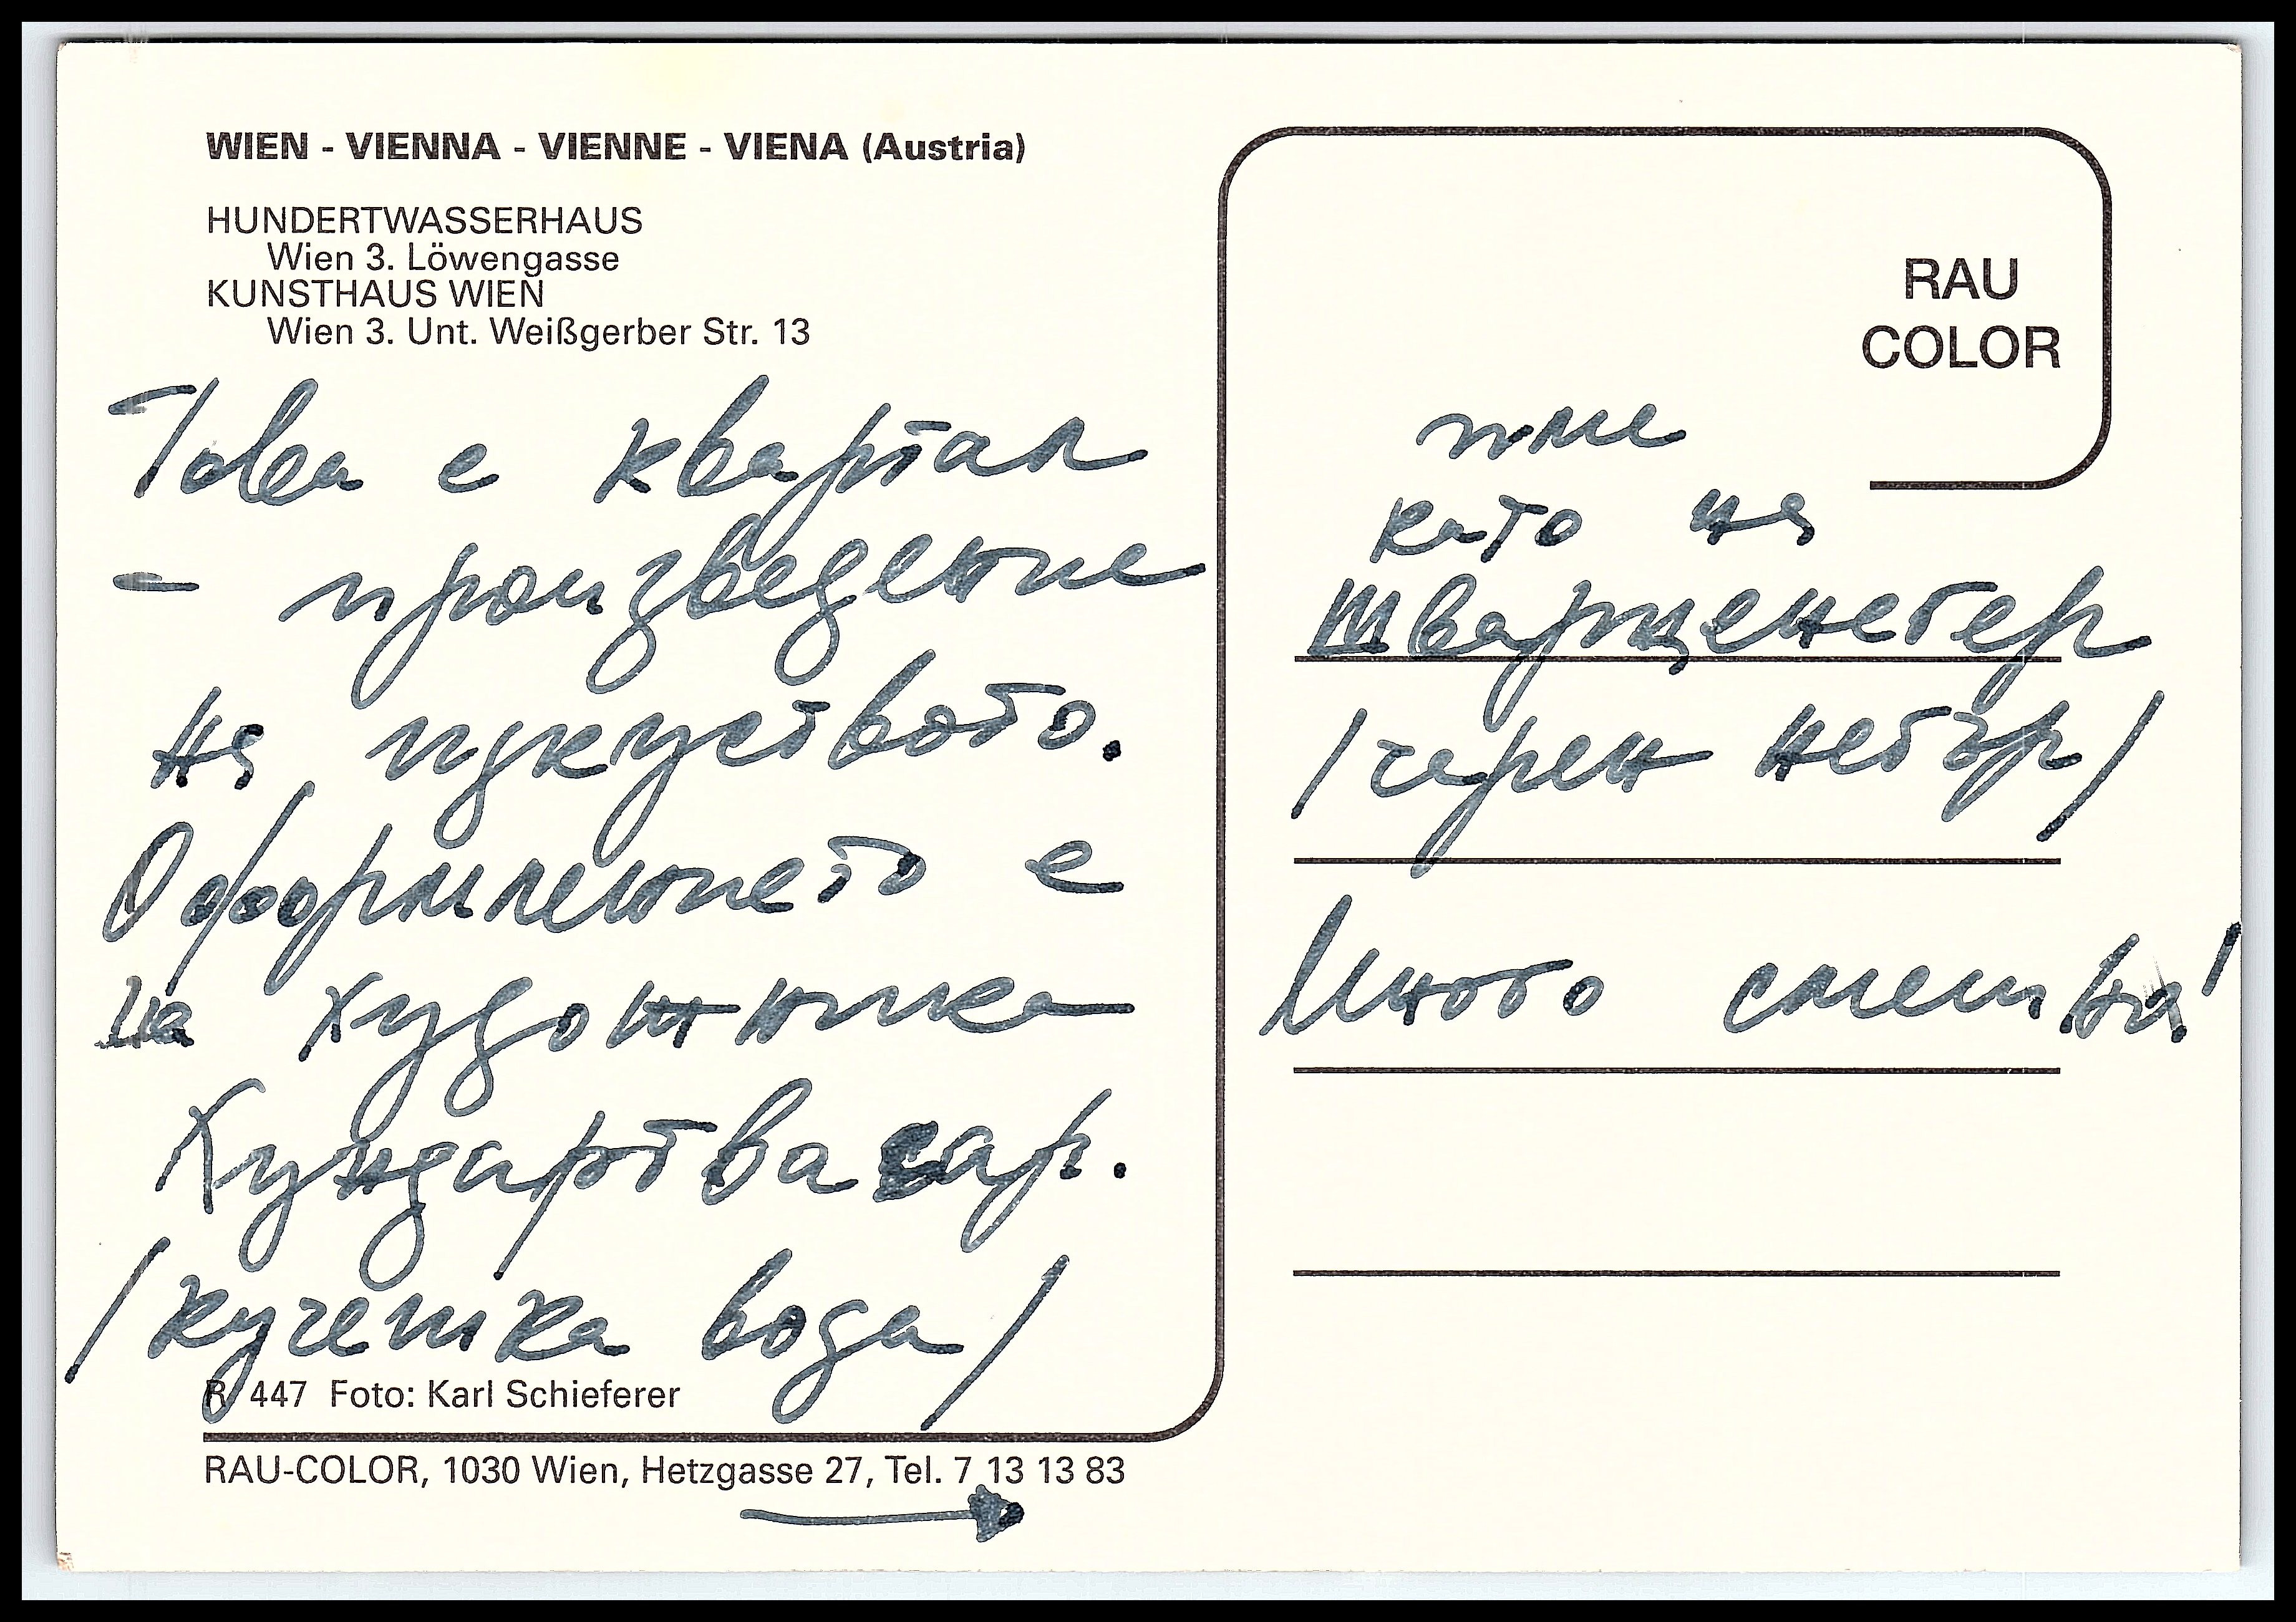 WIEN - VIENNA - VIENNE - VIENA (Austria)
HUNDERTWASSERHAUS
Wien 3. Löwengasse
KUNSTHAUS WIEN
Wien 3. Unt. Weißgerber Str. 13
Това е квартал
- произведение
на изкуството.
Оформлението е
на художника
Хундертвасар.
/кучешка вода/
R 447 Foto: Karl Schieferer
RAU-COLOR, 1030 Wien, Hetzgasse 27, Tel. 7 13 13 83
RAU
COLOR
име
като на
Шварценегер
/черен негър/
Много смешна!